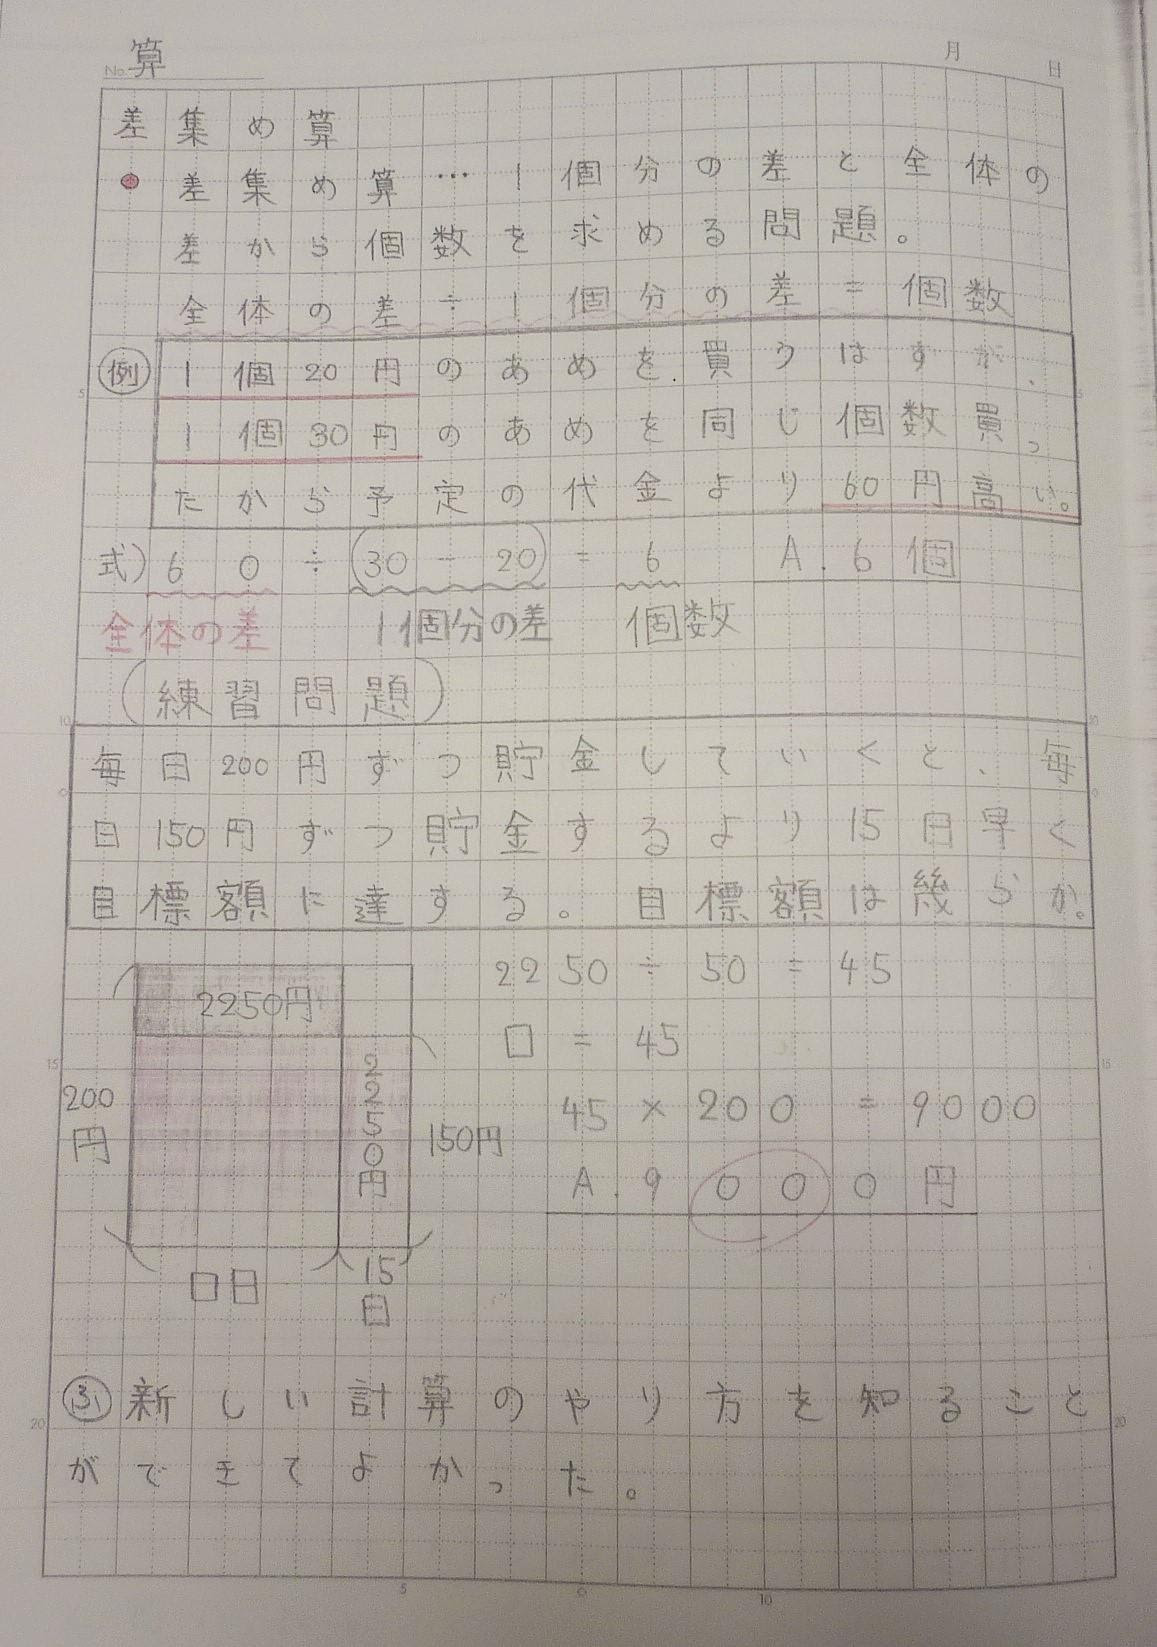 No. 算
月 日
差集め算
● 差集め算…1個分の差と全体の
差から個数を求める問題。
全体の差÷1個分の差=個数
例 1個20円のあめを買うはずが、
1個30円のあめを同じ個数買っ
たから予定の代金より60円高い。
式) 60÷(30-20)=6 A.6個
全体の差 1個分の差 個数
(練習問題)
毎日200円ずつ貯金していくと、毎
日150円ずつ貯金するより15日早く
目標額に達する。目標額は幾らか。
2250円
2250円
200円
150円
□日
15日
2250÷50=45
□=45
45×200=9000
A.9000円
ふ 新しい計算のやり方を知ること
ができてよかった。
5
10
15
20
5
10
15
20
5
10